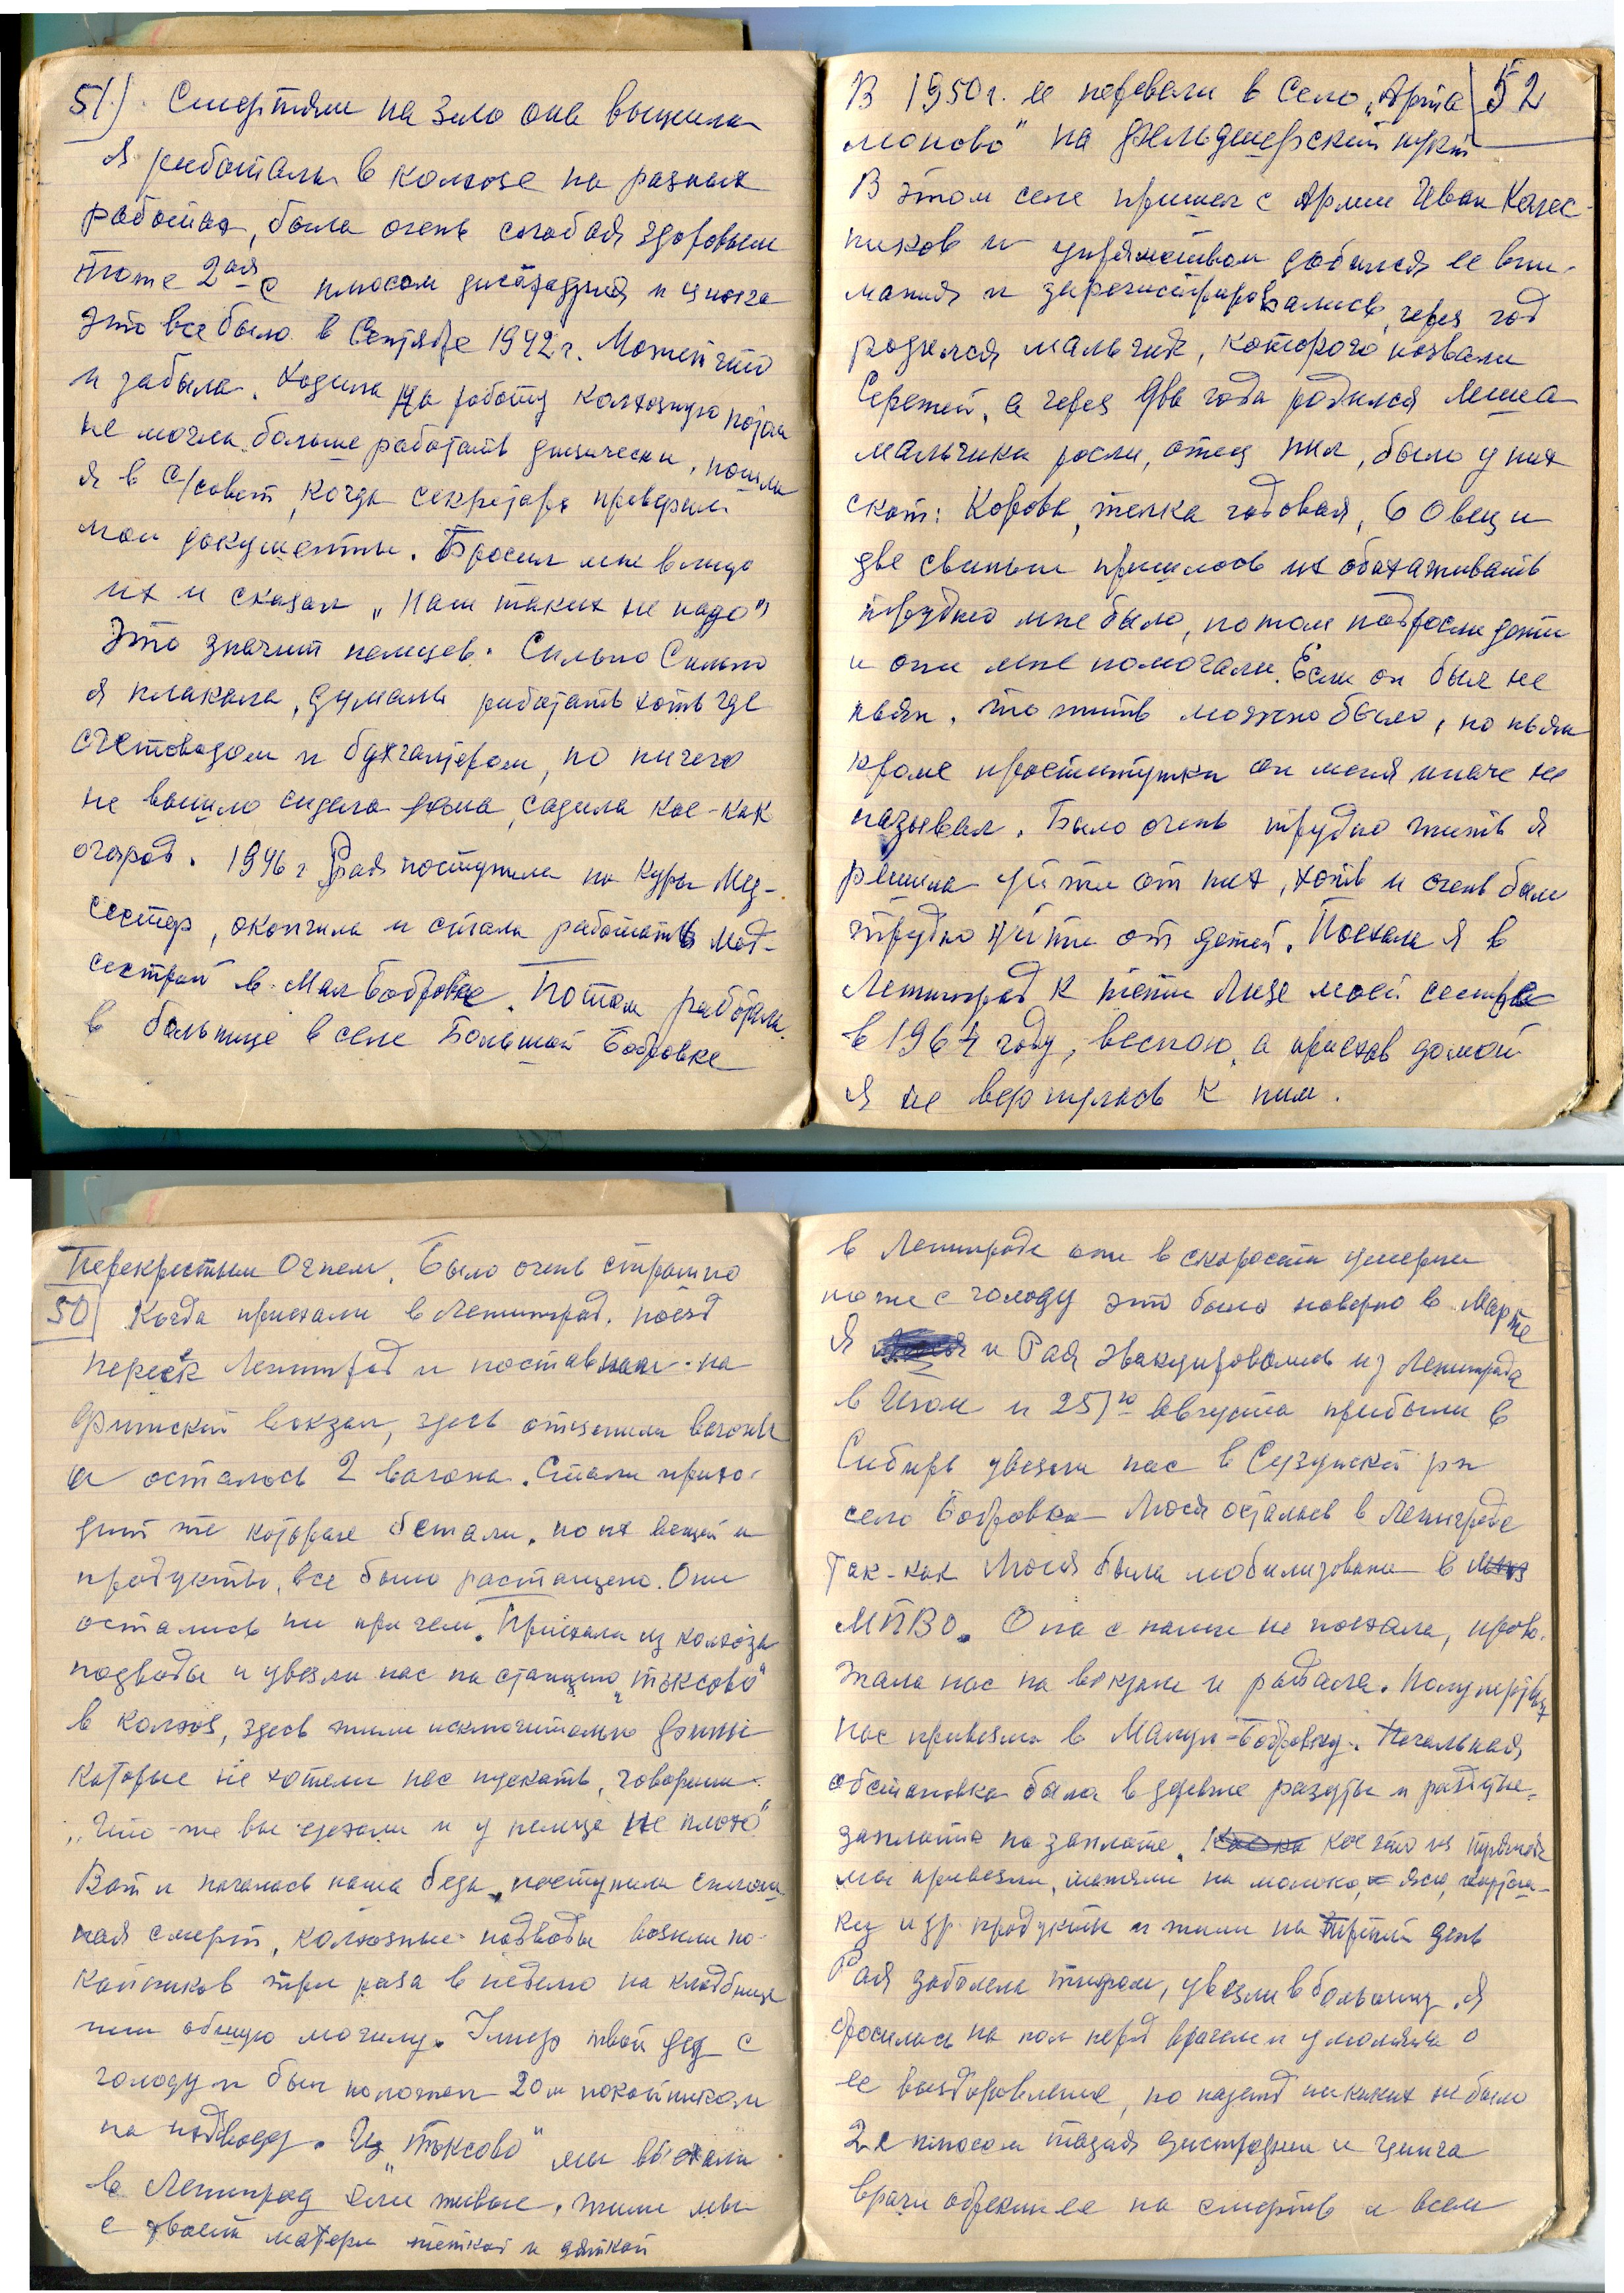 51) Смертям на зло она выжила
Я работала в колхозе на разных
работах, была очень слабая здоровьем
тоже 2ая с плюсом дистрофия и цынга
это все было в Сентябре 1942 г. Может что
и забыла. Ходила на работу колхозную потом
не могла больше работать физически, пошла
я в с/совет, когда секретарь проверил
мои документы. Бросил мне в лицо
их и сказал „Нам таких не надо"
Это значит немцев. Сильно Сильно
я плакала, думала работать хоть где
счетоводом и бухгалтером, но ничего
не вышло сидела дома, садила кое-как
огород. 1946 г Рая поступила на Курсы Мед-
сестер, окончила и стала работать Мед-
сестрой в Мал Бобровке. Потом работала
в больнице в селе Большой Бобровке
В 1950 г. ее перевели в Село „Арта 52
моново" на фельдшерский пункт
В этом селе пришел с Армии Иван Колес-
ников и упрямством добился ее вни-
мания и зарегистрировались, через год
родился мальчик, которого назвали
Сережей, а через два года родился Миша
мальчики росли, отец пил, было у них
скот: Корова, телка годовая, 6 Овец и
две свиньи пришлось их обхаживать
трудно мне было, потом подросли дети
и они мне помогали. Если он был не
пьян, то жить можно было, но пьян
кроме проститутки он меня иначе не
называл. Было очень трудно жить я
решила уйти от них, хотя и очень было
трудно уйти от детей. Поехала я в
Ленинград к тети Лизе моей сестре
в 1964 году, весною, а приехав домой
я не вернулась к ним.
Перекрестным Огнем. Было очень страшно
50 Когда приехали в Ленинград, поезд
пересек Ленинград и поставили на
Финский вокзал, здесь отцепили вагоны
и осталось 2 вагона. Стали прихо-
дит те которые отстали, но их вещей и
продукты, все было растащено. Они
остались ни при чем. Приехали из колхоза
подводы и увезли нас на станцию „Токсово"
в колхоз, здесь жили исключительно финны
которые не хотели нас пускать, говорили
„Что-же вы ехали и у немца не плохо"
Вот и началась наша беда, поступила
ная смерть, колхозные подводы возили по-
койников три раза в неделю на кладбище
или общую могилу. Умер твой дед с
голоду и был положен 20м покойником
на подводу. Из „Токсово" мы выехали
в Ленинград еле живые, жили мы
с твоей матери теткой и дяткой
в Ленинграде они в скорости умерли
тоже с голоду это было наверно в Марте
Я и Рая эвакуировались из Ленинграда
в Июле и 25го Августа прибыли в
Сибирь увезли нас в Сузунский р-н
село Бобровка Люся осталась в Ленинграде
так-как Люся была мобилизована в
МПВО. Она с нами не поехала, прово-
жала нас на вокзале и рыдала. Полумертвых
нас привезли в Малую-Бобровку. Печальная
обстановка была в здешне раздеты и разуты,
заплата на заплате. кое что из
мы привезли, меняли на молоко, яйцо, картош-
ку и др. продукты и жили на третий день
Рая заболела тифом, увезли в больницу. Я
бросилась на пол перед врачем и умоляла о
ее выздоровление, но надежд никаких не было
2 с плюсом дистрофия и цинга
врачи обрекли ее на смерть и всем